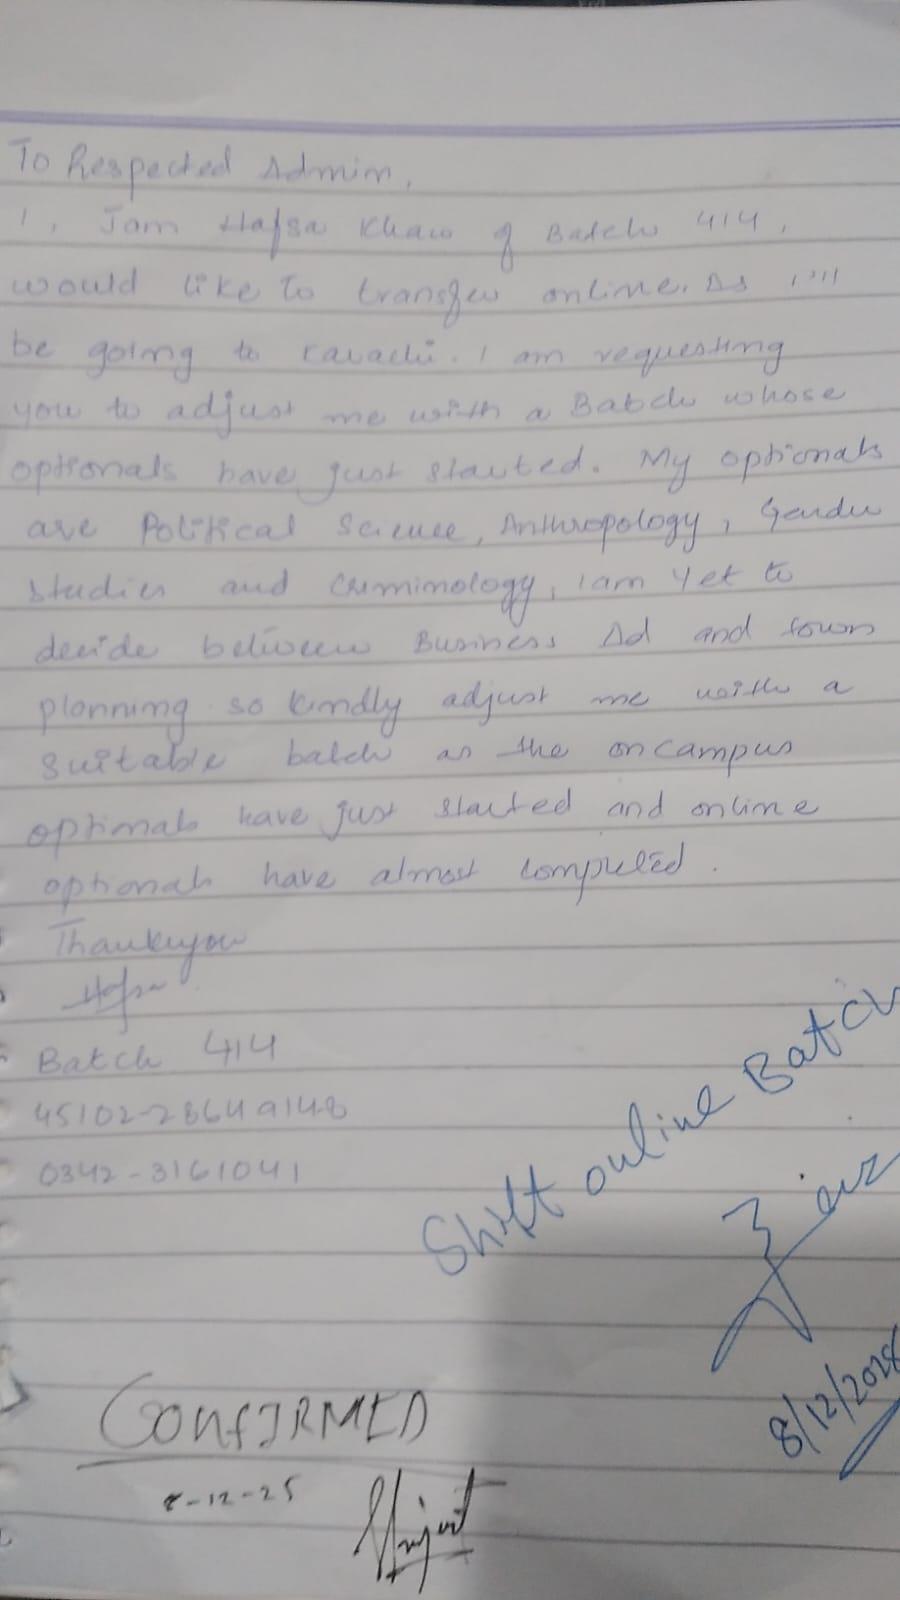 To Respected Admin,
I, Iam Hafsa Khan of Batch 414,
would like to transfer online. As I'll
be going to Karachi. I am requesting
you to adjust me with a Batch whose
optionals have just started. My optionals
are Political Science, Anthropology, Gender
studies and Criminology, iam yet to
decide between Business Ad and town
planning so kindly adjust me with a
suitable batch as the oncampus
optionals have just started and online
optionals have almost completed.
Thankyou
Hafsa
Batch 414
45102-2864914-8
0342-3161041
Shift online Batch
8/12/2025
CONFIRMED
8-12-25